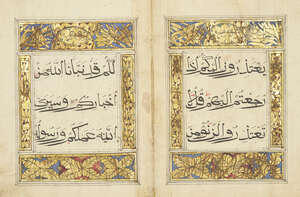 يعتذرون اليكم اذا
رجعتم اليهم قل لا
تعتذروا لن نؤمن
لكم قد نبانا الله من
اخباركم وسيرى
الله عملكم ورسوله